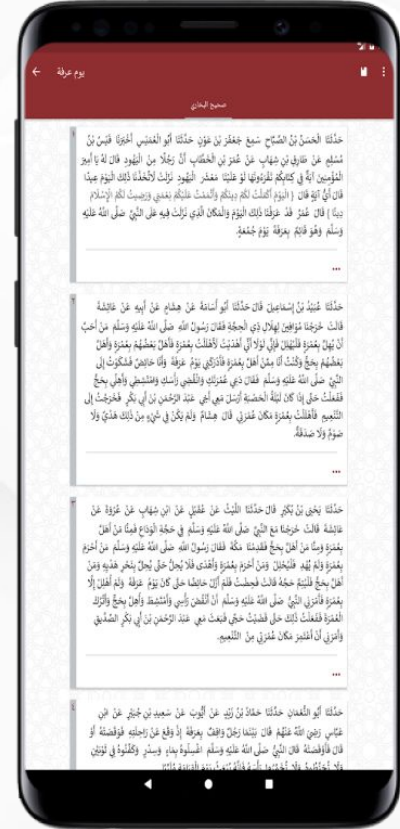 يوم عرفة
صحيح البخاري
١
حَدَّثَنَا الْحَسَنُ بْنُ الصَّبَّاحِ سَمِعَ جَعْفَرَ بْنَ عَوْنٍ حَدَّثَنَا أَبُو الْعُمَيْسِ أَخْبَرَنَا قَيْسُ بْنُ
مُسْلِمٍ عَنْ طَارِقِ بْنِ شِهَابٍ عَنْ عُمَرَ بْنِ الْخَطَّابِ أَنَّ رَجُلًا مِنَ الْيَهُودِ قَالَ لَهُ يَا أَمِيرَ
الْمُؤْمِنِينَ آيَةٌ فِي كِتَابِكُمْ تَقْرَءُونَهَا لَوْ عَلَيْنَا مَعْشَرَ الْيَهُودِ نَزَلَتْ لَاتَّخَذْنَا ذَلِكَ الْيَوْمَ عِيدًا
قَالَ أَيُّ آيَةٍ قَالَ { الْيَوْمَ أَكْمَلْتُ لَكُمْ دِينَكُمْ وَأَتْمَمْتُ عَلَيْكُمْ نِعْمَتِي وَرَضِيتُ لَكُمُ الْإِسْلَامَ
دِينًا } قَالَ عُمَرُ قَدْ عَرَفْنَا ذَلِكَ الْيَوْمَ وَالْمَكَانَ الَّذِي نَزَلَتْ فِيهِ عَلَى النَّبِيِّ صَلَّى اللهُ عَلَيْهِ
وَسَلَّمَ وَهُوَ قَائِمٌ بِعَرَفَةَ يَوْمَ جُمُعَةٍ.
٢
حَدَّثَنَا عُبَيْدُ بْنُ إِسْمَاعِيلَ قَالَ حَدَّثَنَا أَبُو أُسَامَةَ عَنْ هِشَامٍ عَنْ أَبِيهِ عَنْ عَائِشَةَ
قَالَتْ خَرَجْنَا مُوَافِينَ لِهِلَالِ ذِي الْحِجَّةِ فَقَالَ رَسُولُ اللهِ صَلَّى اللهُ عَلَيْهِ وَسَلَّمَ مَنْ أَحَبَّ
أَنْ يُهِلَّ بِعُمْرَةٍ فَلْيُهْلِلْ فَإِنِّي لَوْلَا أَنِّي أَهْدَيْتُ لَأَهْلَلْتُ بِعُمْرَةٍ فَأَهَلَّ بَعْضُهُمْ بِعُمْرَةٍ وَأَهَلَّ
بَعْضُهُمْ بِحَجٍّ وَكُنْتُ أَنَا مِمَّنْ أَهَلَّ بِعُمْرَةٍ فَأَدْرَكَنِي يَوْمُ عَرَفَةَ وَأَنَا حَائِضٌ فَشَكَوْتُ إِلَى
النَّبِيِّ صَلَّى اللهُ عَلَيْهِ وَسَلَّمَ فَقَالَ دَعِي عُمْرَتَكِ وَانْقُضِي رَأْسَكِ وَامْتَشِطِي وَأَهِلِّي بِحَجٍّ
فَفَعَلْتُ حَتَّى إِذَا كَانَ لَيْلَةُ الْحَصْبَةِ أَرْسَلَ مَعِي أَخِي عَبْدَ الرَّحْمَنِ بْنَ أَبِي بَكْرٍ فَخَرَجْتُ إِلَى
التَّنْعِيمِ فَأَهْلَلْتُ بِعُمْرَةٍ مَكَانَ عُمْرَتِي قَالَ هِشَامٌ وَلَمْ يَكُنْ فِي شَيْءٍ مِنْ ذَلِكَ هَدْيٌ وَلَا
صَوْمٌ وَلَا صَدَقَةٌ.
٣
حَدَّثَنَا يَحْيَى بْنُ بُكَيْرٍ قَالَ حَدَّثَنَا اللَّيْثُ عَنْ عُقَيْلٍ عَنْ ابْنِ شِهَابٍ عَنْ عُرْوَةَ عَنْ
عَائِشَةَ قَالَتْ خَرَجْنَا مَعَ النَّبِيِّ صَلَّى اللهُ عَلَيْهِ وَسَلَّمَ فِي حَجَّةِ الْوَدَاعِ فَمِنَّا مَنْ أَهَلَّ
بِعُمْرَةٍ وَمِنَّا مَنْ أَهَلَّ بِحَجٍّ فَقَدِمْنَا مَكَّةَ فَقَالَ رَسُولُ اللهِ صَلَّى اللهُ عَلَيْهِ وَسَلَّمَ مَنْ أَحْرَمَ
بِعُمْرَةٍ وَلَمْ يُهْدِ فَلْيُحْلِلْ وَمَنْ أَحْرَمَ بِعُمْرَةٍ وَأَهْدَى فَلَا يُحِلُّ حَتَّى يُحِلَّ بِنَحْرِ هَدْيِهِ وَمَنْ
أَهَلَّ بِحَجٍّ فَلْيُتِمَّ حَجَّهُ قَالَتْ فَحِضْتُ فَلَمْ أَزَلْ حَائِضًا حَتَّى كَانَ يَوْمُ عَرَفَةَ وَلَمْ أُهْلِلْ إِلَّا
بِعُمْرَةٍ فَأَمَرَنِي النَّبِيُّ صَلَّى اللهُ عَلَيْهِ وَسَلَّمَ أَنْ أَنْقُضَ رَأْسِي وَأَمْتَشِطَ وَأُهِلَّ بِحَجٍّ وَأَتْرُكَ
الْعُمْرَةَ فَفَعَلْتُ ذَلِكَ حَتَّى قَضَيْتُ حَجِّي فَبَعَثَ مَعِي عَبْدَ الرَّحْمَنِ بْنَ أَبِي بَكْرٍ الصِّدِّيقِ
وَأَمَرَنِي أَنْ أَعْتَمِرَ مَكَانَ عُمْرَتِي مِنَ التَّنْعِيمِ.
٤
حَدَّثَنَا أَبُو النُّعْمَانِ حَدَّثَنَا حَمَّادُ بْنُ زَيْدٍ عَنْ أَيُّوبَ عَنْ سَعِيدِ بْنِ جُبَيْرٍ عَنْ ابْنِ
عَبَّاسٍ رَضِيَ اللهُ عَنْهُمْ قَالَ بَيْنَمَا رَجُلٌ وَاقِفٌ بِعَرَفَةَ إِذْ وَقَعَ عَنْ رَاحِلَتِهِ فَوَقَصَتْهُ أَوْ
قَالَ فَأَوْقَصَتْهُ قَالَ النَّبِيُّ صَلَّى اللهُ عَلَيْهِ وَسَلَّمَ اغْسِلُوهُ بِمَاءٍ وَسِدْرٍ وَكَفِّنُوهُ فِي ثَوْبَيْنِ